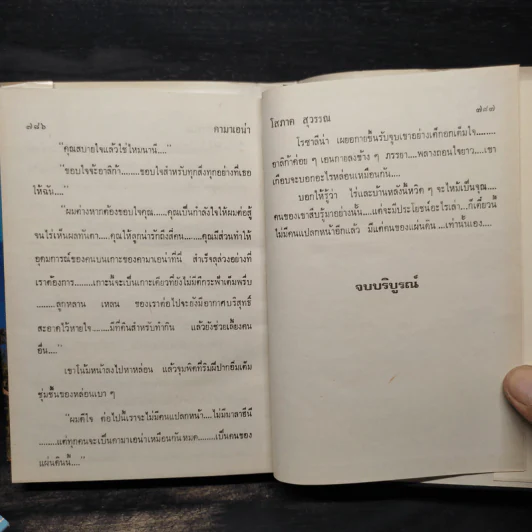 ๗๘๖ คามาเอน่า
"คุณสบายใจแล้วใช่ไหมนานี...."
"ขอบใจจ้ะอาลิก้า........ขอบใจสำหรับทุกสิ่งทุกอย่างที่เธอ
ให้ฉัน...."
"ผมต่างหากต้องขอบใจคุณ.......คุณเป็นกำลังใจให้ผมต่อสู้
จนไร่เห็นผลทันตา.....คุณให้ลูกน่ารักถึงสี่คน........คุณมีส่วนทำให้
อุดมการณ์ของคนบนเกาะของคามาเอน่าที่นี่ สำเร็จลุล่วงอย่างที่
เราต้องการ........เกาะนี้จะเป็นเกาะเดียวที่ยังไม่มีตึกระฟ้าเต็มพรืด
........ลูกหลาน เหลน ของเราต่อไปจะยังมีอากาศบริสุทธิ์
สะอาดไว้หายใจ........มีที่ดินสำหรับทำกิน แล้วยังช่วยเลี้ยงคน
อื่น...."
เขาโน้มหน้าลงไปหาหล่อน แล้วจุมพิตที่ริมฝีปากอิ่มเต็ม
ชุ่มชื้นของหล่อนเบา ๆ
"ผมดีใจ ต่อไปนี้เราจะไม่มีคนแปลกหน้า.....ไม่มีมาลาฮีนี
........แต่ทุกคนจะเป็นคามาเอน่าเหมือนกันหมด........เป็นคนของ
แผ่นดินนี้...."
โสภาค สุวรรณ ๗๘๗
โรซาลีน่า เผยอกายขึ้นรับจูบเขาอย่างเต็มอกเต็มใจ........
อาลิก้าค่อย ๆ เอนกายลงข้าง ๆ ภรรยา.....พลางถอนใจยาว.....เขา
เกือบจะบอกอะไรหล่อนเหมือนกัน....
บอกให้รู้ว่า ไร่และบ้านหลังนี้หวิด ๆ จะไหม้เป็นจุณ....
คนของเขาสืบรู้มาอย่างนั้น.....แต่จะมีประโยชน์อะไรเล่า....ก็เดี๋ยวนี้
ไม่มีคนแปลกหน้าอีกแล้ว มีแต่คนของแผ่นดิน ....เท่านั้นเอง....
จบบริบูรณ์